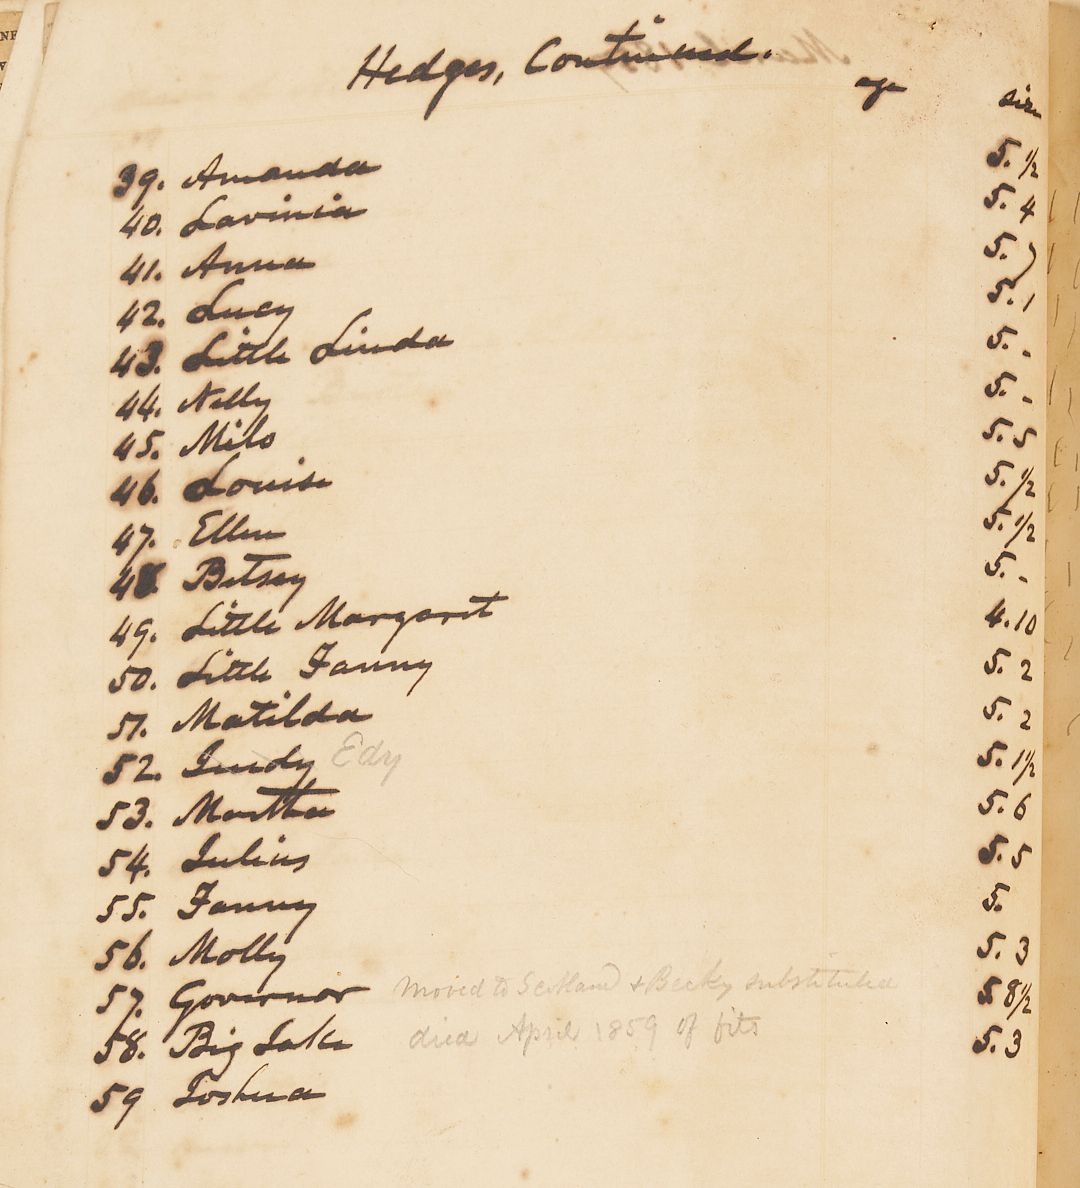 Hedges, Continued.
age size
39. Amanda 5. 1/2
40. Lavinia 5. 4
41. Anna 5. 7
42. Lucy 5. 1
43. Little Linda 5. -
44. Nelly 5. -
45. Milo 5. 5
46. Louisa 5. 1/2
47. Ellen 5. 1/2
48. Betsey 5. -
49. Little Margaret 4. 10
50. Little Fanny 5. 2
51. Matilda 5. 2
52. Judy Edy 5. 1 1/2
53. Martha 5. 6
54. Julius 5. 5
55. Fanny 5.
56. Molly 5. 3
57. Governor moved to Scotland & Becky substituted 5 8 1/2
58. Big Jake died April 1859 of fits 5. 3
59 Joshua